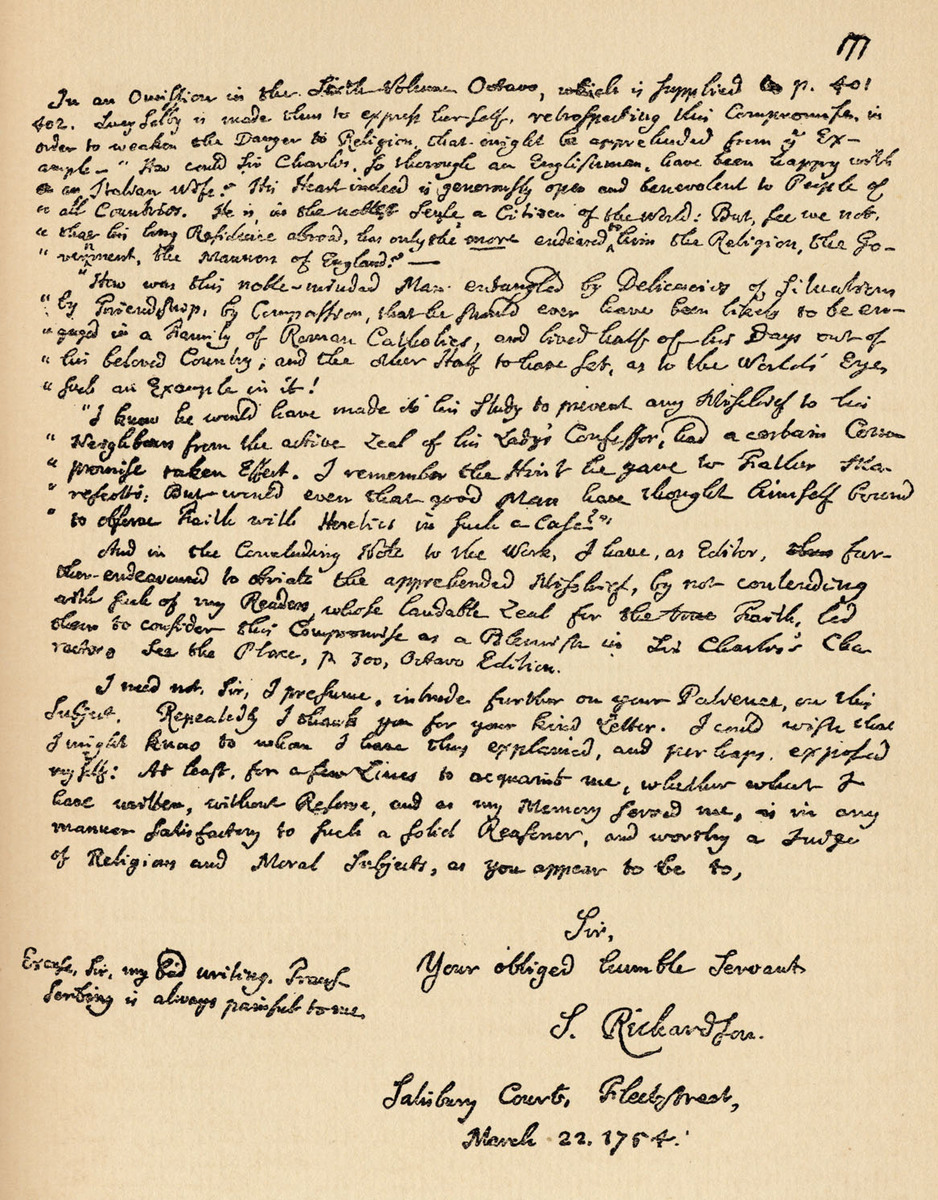 In an Omission in the Sixth Volume Octavo, which is supplied p. 401
402. Lucy Selby is made thus to express herself, retrospecting this Compromise, in
order to weaken the Danger to Religion, that might be apprehended from yͤ Ex-
ample – "How could Sir Charles, so thorough an Englishman, have been happy with
" an Italian Wife? His Heart indeed is generously open and benevolent to People of
" all Countries. He is, in the noblest Sense a Citizen of the World: But, see we not,
" that his long Residence abroad, has only the more endeared to him the Religion, the Go-
" vernment, the Manners of England? —
"How was this noble-minded Man entangled by Delicacies of Situation
" by Friendship, by Compassion, that he should ever have been likely to be en-
" gaged in a Family of Roman Catholics, and lived half of his Days out of
" his beloved Country; and the other Half to have set, as to the World's Eye,
" such an Example in it!
"I know he would have made it his Study to prevent any Mischief to his
" Neighbours from the active Zeal of his Lady's Confessor, had a certain Com-
" promise taken Effect. I remember the Hint he gave to Father Ma-
" rescotti: But would even that good Man have thought himself bound
" to observe Faith with Heretics in such a Case?"
And in the Concluding Note to the Work, I have, as Editor, fur-
ther endeavoured to obviate the apprehended Mischief, by not contending
with such of my Readers, whose laudable Zeal for the true Faith, led
them to consider this Compromise as a Blemish in Sir Charles's Cha
racter. See the Place, p. 300, Octavo Edition.
I need not, Sir, I presume, intrude further on your Patience, on this
Subject. Repeatedly I thank you for your kind Letter. I could wish that
I might know to whom I have thus explained, and perhaps exposed
myself: At least, for a few Lines to acquaint me, whether what I
have written, without Reserve, and as my Memory served me, is in any
manner satisfactory to such a solid Reasoner, and worthy a Judge
of Religious and Moral Subjects, as you appear to be to,
Sir,
Your obliged humble Servant
S. Richardson.
Excuse, Sir, my bad writing. Trans-
scribing is always painful to me.
Salisbury Court, Fleetstreet,
March 22. 1754.